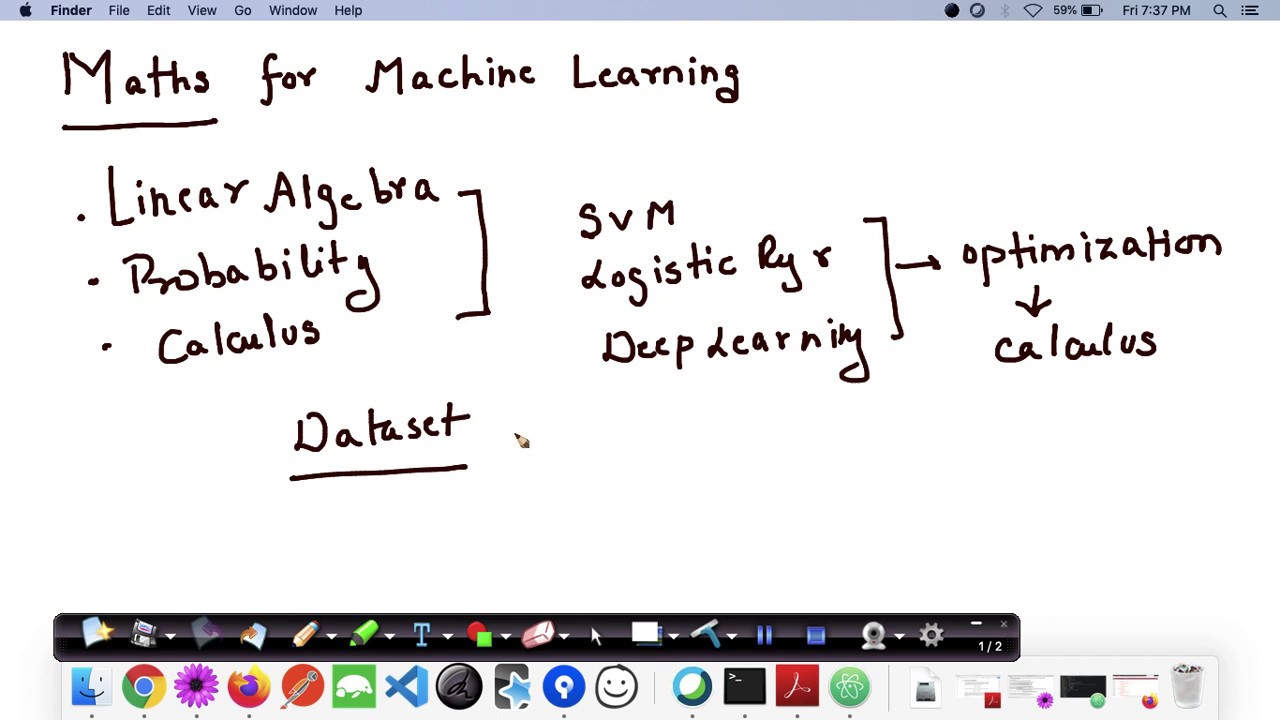 Finder File Edit View Go Window Help 59% Fri 7:37 PM
Maths for Machine Learning
. Linear Algebra
. Probability
. Calculus
SVM
Logistic Reg r
Deep Learning
→ optimization
↓
calculus
Dataset
T
1/2
>_